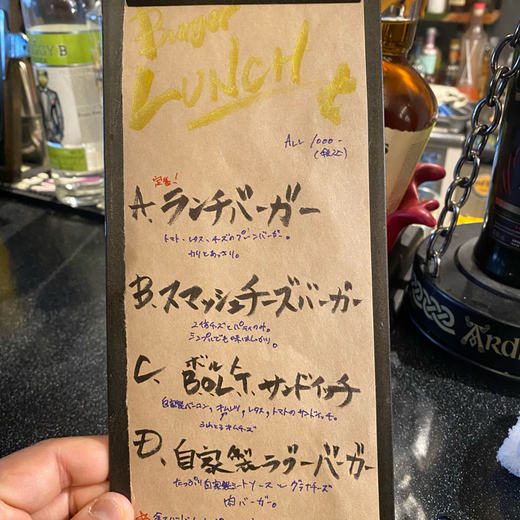 Burger
LUNCH
ALL 1000-
(税込)
定番!
A. ランチバーガー
トマト、レタス、チーズのプレーンバーガー。
わりとあっさり。
B. スマッシュチーズバーガー
2倍チーズとパティのみ。
シンプルでも味はしっかり。
C. B.O.L.T. サンドイッチ
ボルト
自家製ベーコン、オムレツ、レタス、トマトのサンドイッチ。
D. 自家製ラグーバーガー
たっぷり自家製ミートソースとグラナチーズ
肉バーガー。
GGY B
ARD